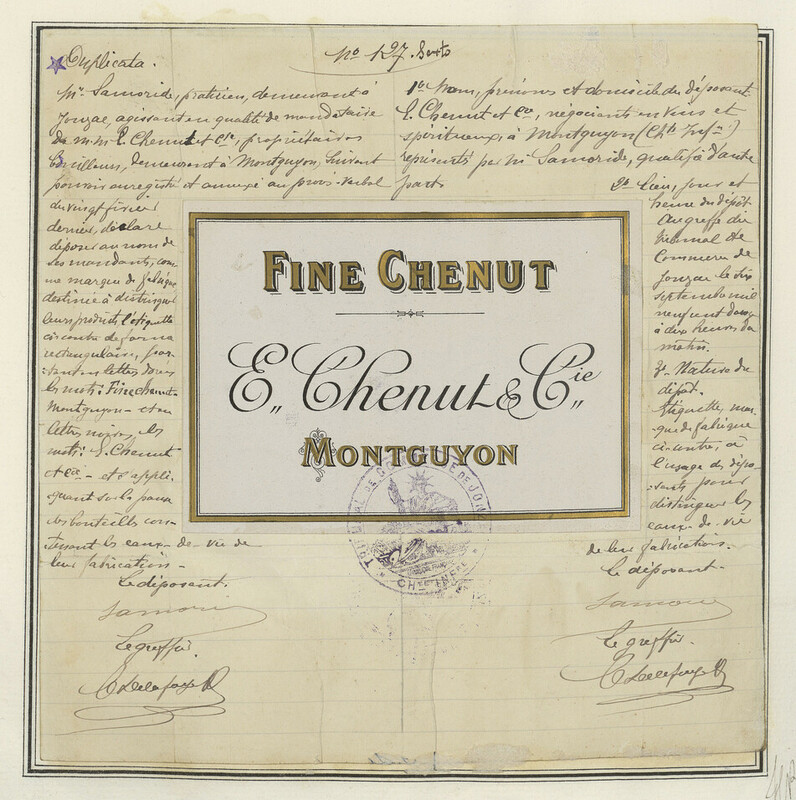 Duplicata.
No 127. Sexto
Mr. Samoride, praticien, demeurant à
Jonzac, agissant en qualité de mandataire
de m.m. E. Chenut et Cie, propriétaires
bouilleurs, demeurant à Montguyon, suivant
pouvoir enregistré et annexé au procès-verbal
du vingt février
dernier, déclare
déposer au nom de
ses mandants, com
me marque de fabrique
destinée à distinguer
leurs produits, l'étiquette
ci-contre de forme
rectangulaire, por-
tant en lettres dorées
les mots: Fine Chenut-
Montguyon - et en
lettres noires, les
mots: E. Chenut
et Cie - et s'appli-
quant sur la panse
des bouteilles con-
tenant les eaux-de-vie de
leur fabrication -
Le déposant.
Samoride
Le greffier.
FINE CHENUT
E„ Chenut & Cie„
MONTGUYON
TRIBUNAL DE COMMERCE DE JONZAC
CHTE INFRE
1o Nom, prénoms et domicile du déposant
E. Chenut et Cie, négociants en vins et
spiritueux, à Montguyon (Chte Infre)
représentés par Mr Samoride, qualifié d'autre
part.
2o Lieu, jour et
heure du dépôt
Au greffe du
tribunal de
Commerce de
Jonzac le six
septembre mil
neuf cent douze
à dix heures du
matin.
3o Nature du
dépôt.
Etiquette, mar-
que de fabrique
ci-contre, à
l'usage des dépo-
sants pour
distinguer les
eaux-de-vie
de leur fabrication.
Le déposant.
Samoride
Le greffier.